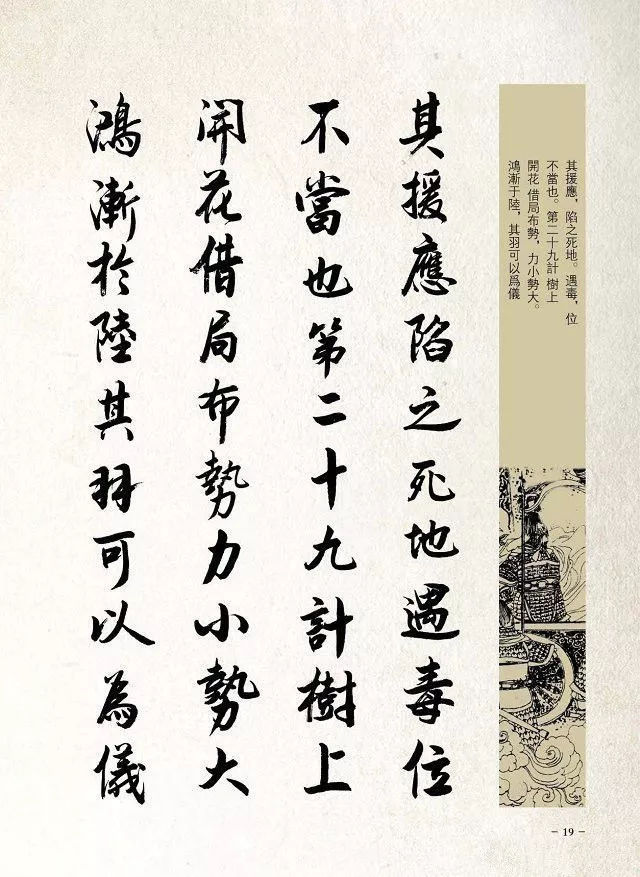 其援應，陷之死地。遇毒，位
不當也。第二十九計 樹上
開花 借局布勢，力小勢大。
鴻漸于陸，其羽可以爲儀
其援應陷之死地遇毒位
不當也第二十九計樹上
開花借局布勢力小勢大
鴻漸於陸其羽可以為儀
- 19 -